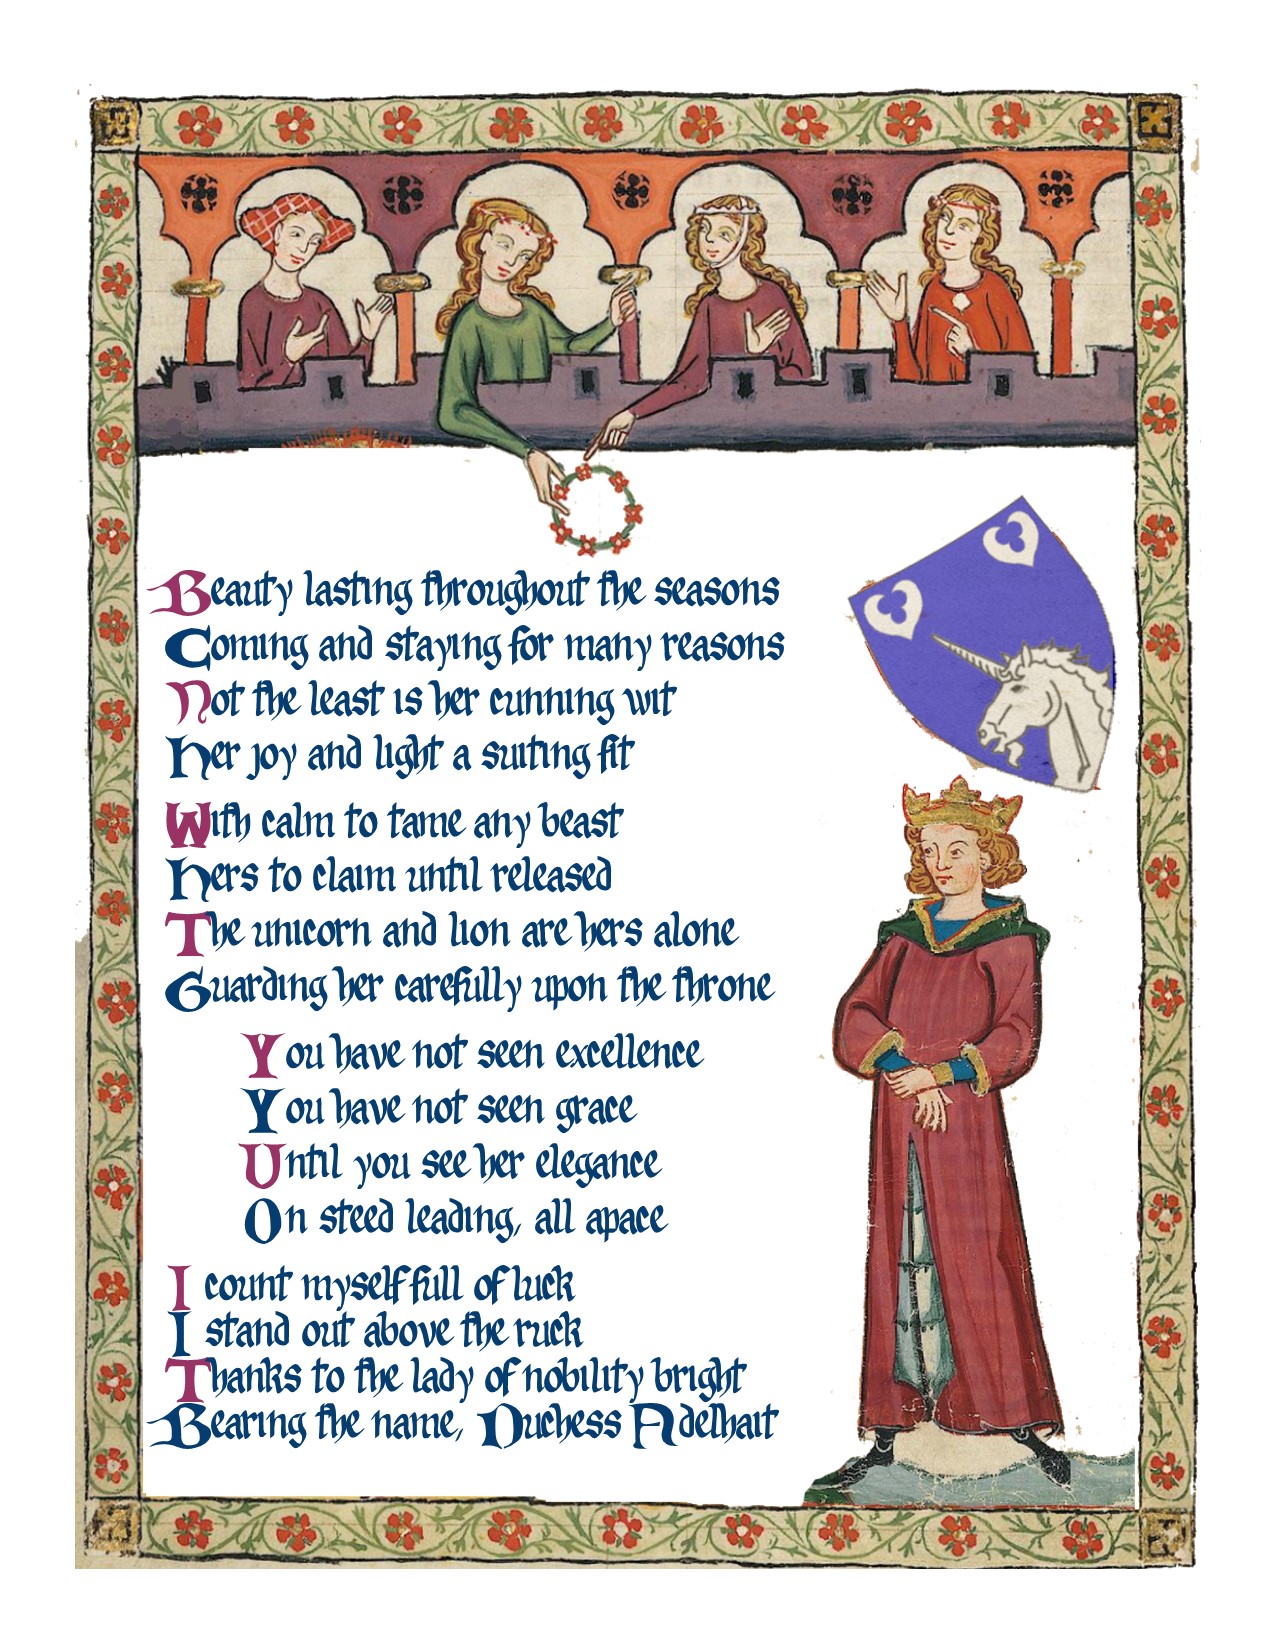 Beauty lasting throughout the seasons
Coming and staying for many reasons
Not the least is her cunning wit
Her joy and light a suiting fit
With calm to tame any beast
Hers to claim until released
The unicorn and lion are hers alone
Guarding her carefully upon the throne
You have not seen excellence
You have not seen grace
Until you see her elegance
On steed leading, all apace
I count myself full of luck
I stand out above the ruck
Thanks to the lady of nobility bright
Bearing the name, Duchess Adelhait